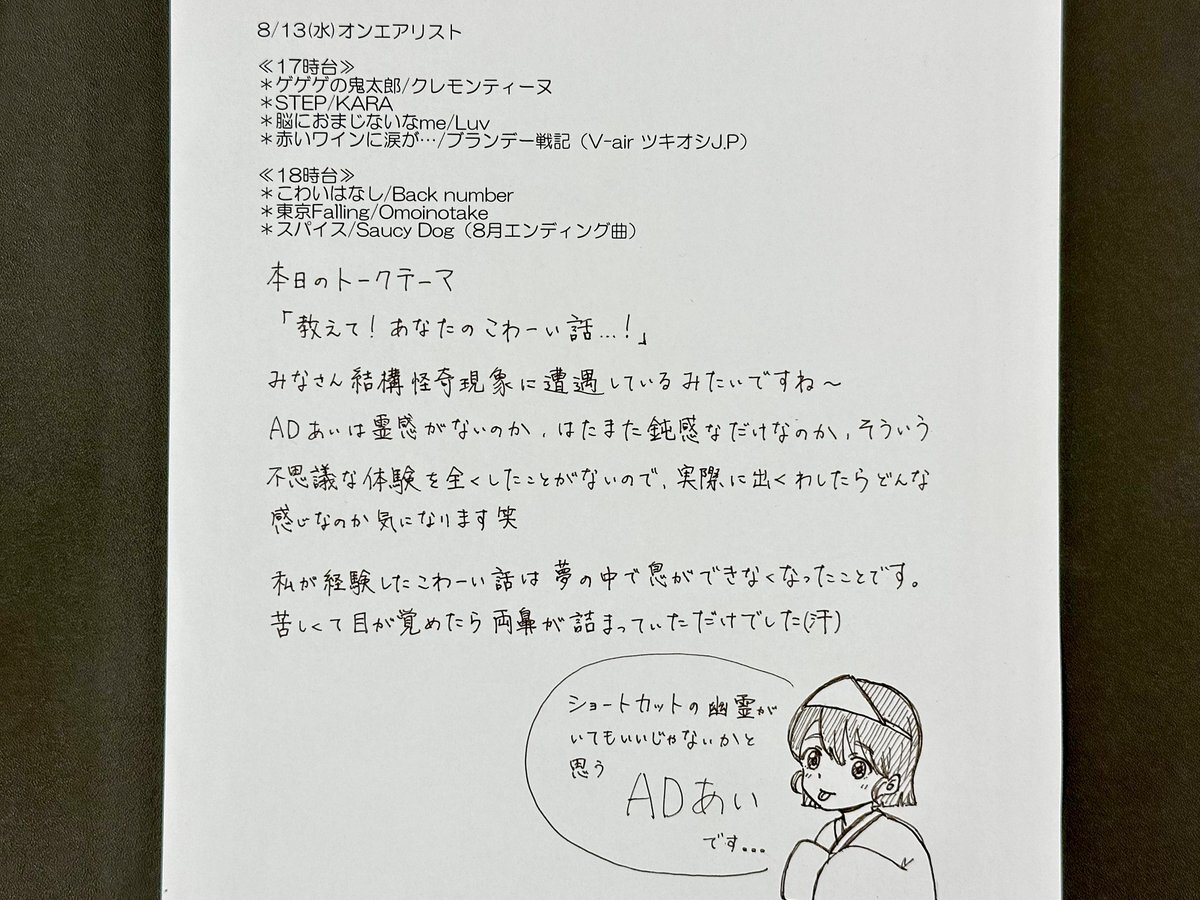 8/13(水)オンエアリスト
≪17時台≫
＊ゲゲゲの鬼太郎/クレモンティーヌ
＊STEP/KARA
＊脳におまじないなme/Luv
＊赤いワインに涙が…/ブランデー戦記（V-air ツキオシJ.P）
≪18時台≫
＊こわいはなし/Back number
＊東京Falling/Omoinotake
＊スパイス/Saucy Dog（8月エンディング曲）
本日のトークテーマ
「教えて！あなたのこわーい話…！」
みなさん結構怪奇現象に遭遇しているみたいですね～
ADあいは霊感がないのか、はたまた鈍感なだけなのか、そういう
不思議な体験を全くしたことがないので、実際に出くわしたらどんな
感じなのか気になります笑
私が経験したこわーい話は夢の中で息ができなくなったことです。
苦しくて目が覚めたら両鼻が詰まっていただけでした(汗)
ショートカットの幽霊が
いてもいいじゃないかと
思う
ADあい
です…